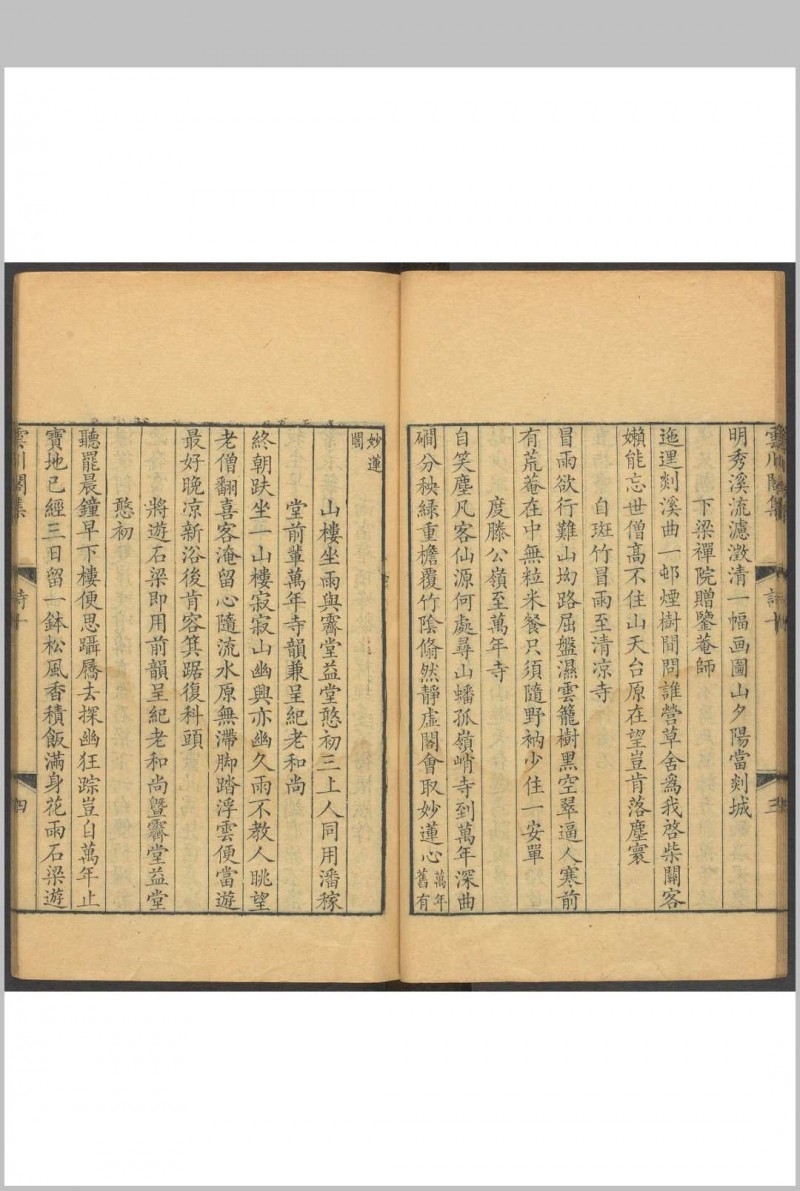 雲川閣集 詩十 三
明秀溪流濾澂清一幅画圖山夕陽當剡城
下梁禪院贈鑒菴師
迤邐剡溪曲一邨煙樹間問誰營草舍爲我啓柴關客
嬾能忘世僧高不住山天台原在望豈肯落塵寰
自斑竹冒雨至清凉寺
冒雨欲行難山坳路屈盤濕雲籠樹黑空翠逼人寒前
有荒菴在中無粒米餐只須隨野衲少住一安單
度藤公嶺至萬年寺
自笑塵凡客仙源何處尋山蟠孤嶺峭寺到萬年深曲
磵分秧綠重檐覆竹陰翛然靜虛閣會取妙蓮心萬年舊有
妙蓮閣
山樓坐雨與霽堂益堂憨初三上人同用潘稼
堂前輩萬年寺韻兼呈紀老和尚
終朝趺坐一山樓寂寂山幽興亦幽久雨不教人眺望
老僧翻喜客淹留心隨流水原無滯脚踏浮雲便當遊
最好晚凉新浴後肯容箕踞復科頭
將遊石梁即用前韻呈紀老和尚暨霽堂益堂
憨初
聽罷晨鐘早下樓便思躡屩去探幽狂踪豈自萬年止
寶地已經三日留一鉢松風香積飯滿身花雨石梁遊
雲川閣集 詩十 四